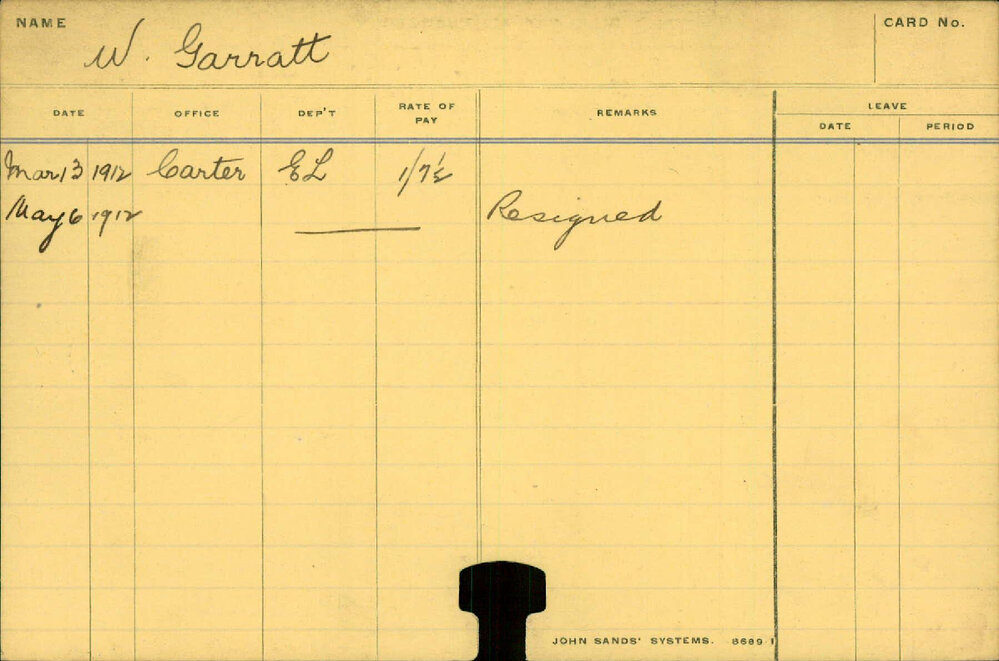 NAME W. Garratt CARD No.
DATE OFFICE DEP'T RATE OF PAY REMARKS LEAVE
DATE PERIOD
Mar 13 1912 Carter EL 1/7½
May 6 1912 Resigned
JOHN SANDS' SYSTEMS. 8689 1